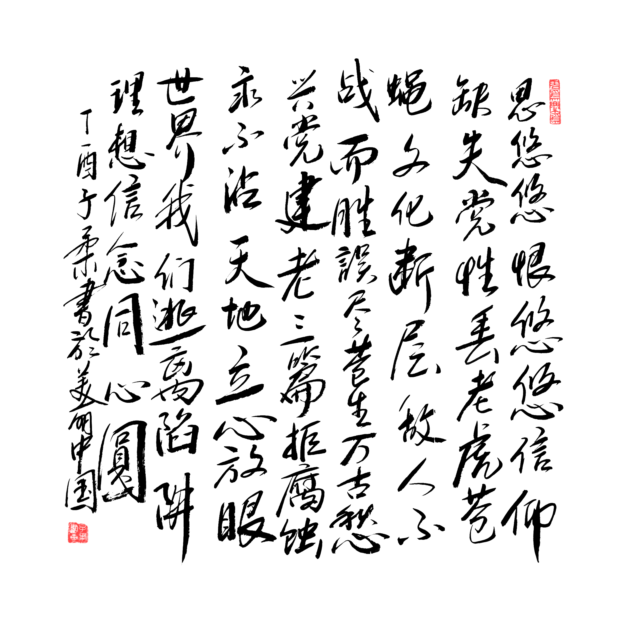 思悠悠恨悠悠信仰
缺失党性丢老虎苍
蝇文化断层敌人不
战而胜误尽苍生万古愁
兴党建老三篇拒腐蚀
永不沾天地立心放眼
世界我们逃离陷阱
理想信念同心圆
丁酉于柔書於美丽中国